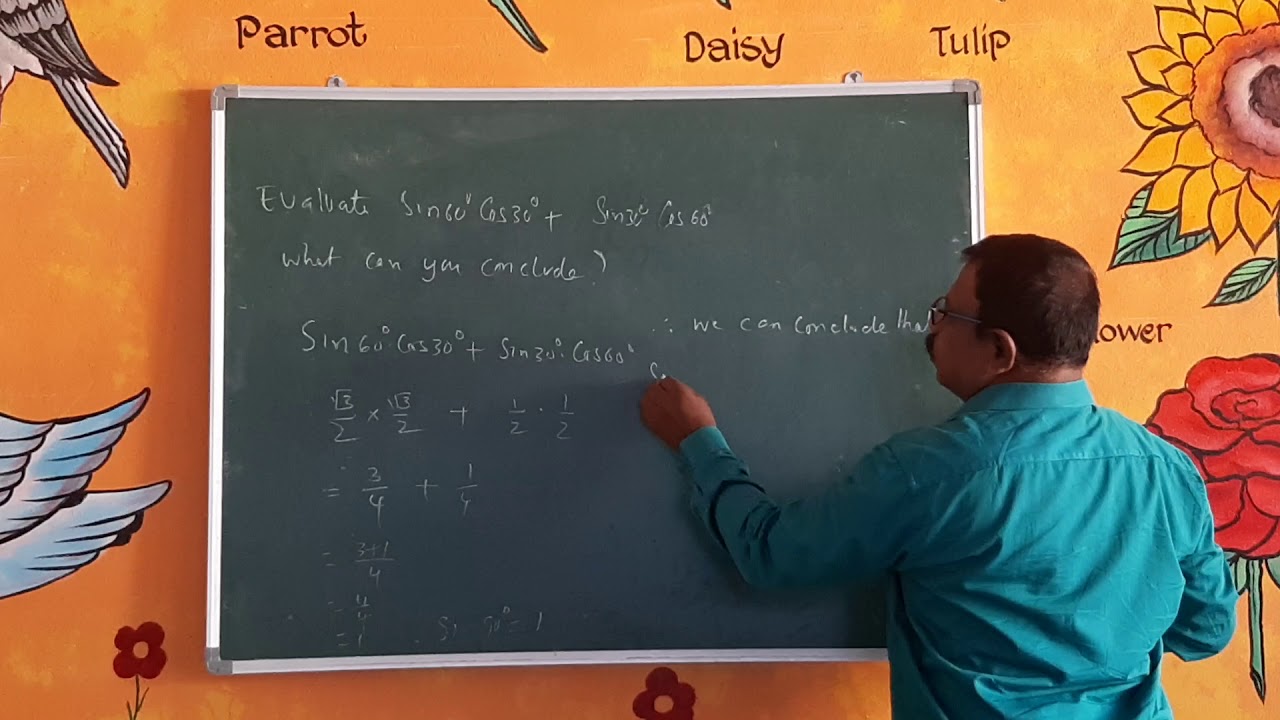 Parrot
Daisy
Tulip
Evaluate Sin60° Cos30° + Sin30° Cos60°
What can you conclude?
Sin60° Cos30° + Sin30°. Cos60°
√3/2 × √3/2 + 1/2 . 1/2
= 3/4 + 1/4
= 3+1/4
= 4/4
= 1
90° = 1
∴ we can conclude that
lower